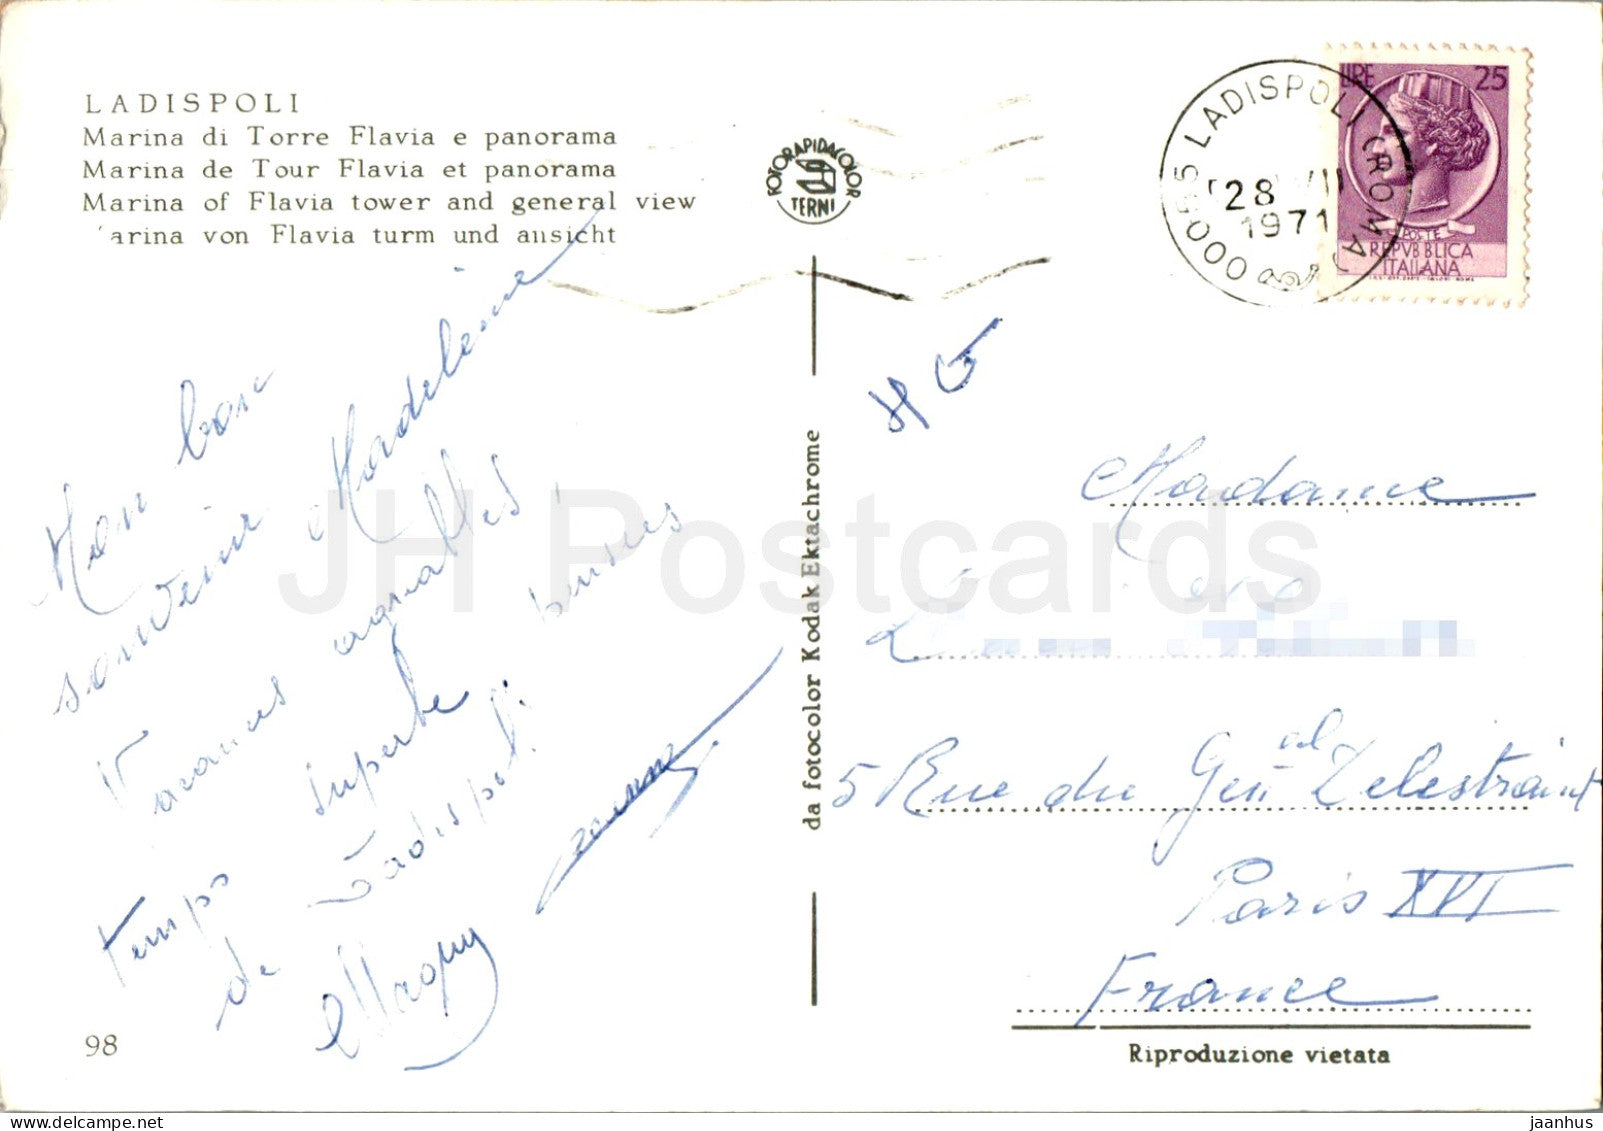 LADISPOLI
Marina di Torre Flavia e panorama
Marina de Tour Flavia et panorama
Marina of Flavia tower and general view
arina von Flavia turm und ansicht
FOTORAPIDACOLOR
TERNI
00055 LADISPOLI (ROMA)
28 VII
1971
LIRE 25
POSTE
REPVBBLICA
ITALIANA
Mon bon
souvenir Madeleine
Vacances agréables
temps superbe
de Ladispoli
da fotocolor Kodak Ektachrome
Madame
5 Rue du Gén al Delestraint
Paris XVI
France
98
Riproduzione vietata
JH Postcards
jaanhus